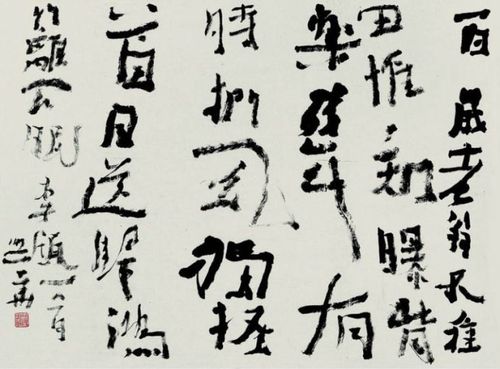 百歲老翁不種
田惟知曝背
樂殘年有
時捫虱獨搔
首目送歸鴻
籬下眠 李頎一首